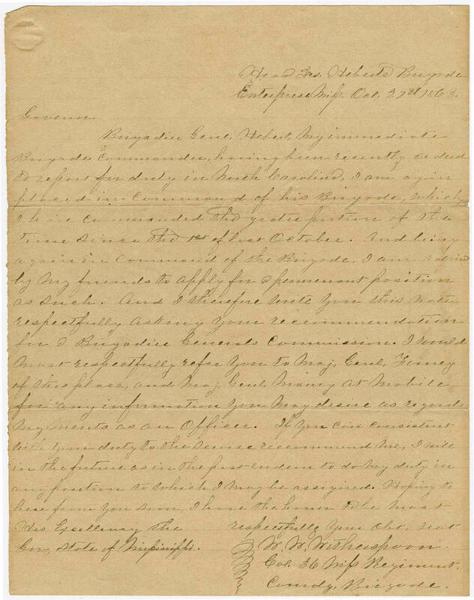 Head Qrs. Heberts Brigade
Enterprise Miss. Oct. 27th 1863.
Governor
Brigadier Genl. Hebert, My immediate
Brigade Commander, having been recently ordered
to report for duty in North Carolina, I am again
placed in Command of his Brigade, which
I have commanded the greater portion of the
time since the 1st of last October. And being
again in Command of the Brigade, I am advised
by My friends to apply for a permanent position
as such. And I therefore write You this Note
respectfully asking Your recommendation
for a Brigadier Generals Commission. I would
Most respectfully refer You to Maj. Genl. Forney
of this place, and Maj. Genl. Maury at Mobile,
for any information You May desire as regards
My Merits as an Officer. If You can consistent
with Your duty to the service recommend Me, I will
in the future as in the past endeavor to do My duty in
any position to which I May be assigned. Hoping to
hear from You soon, I have the honor to be most
His Excellency the respectfully Your Obt. Svt
Gov. State of Mississippi. W. W. Witherspoon
Col. 36 Miss Regiment.
Comdg. Brigade.